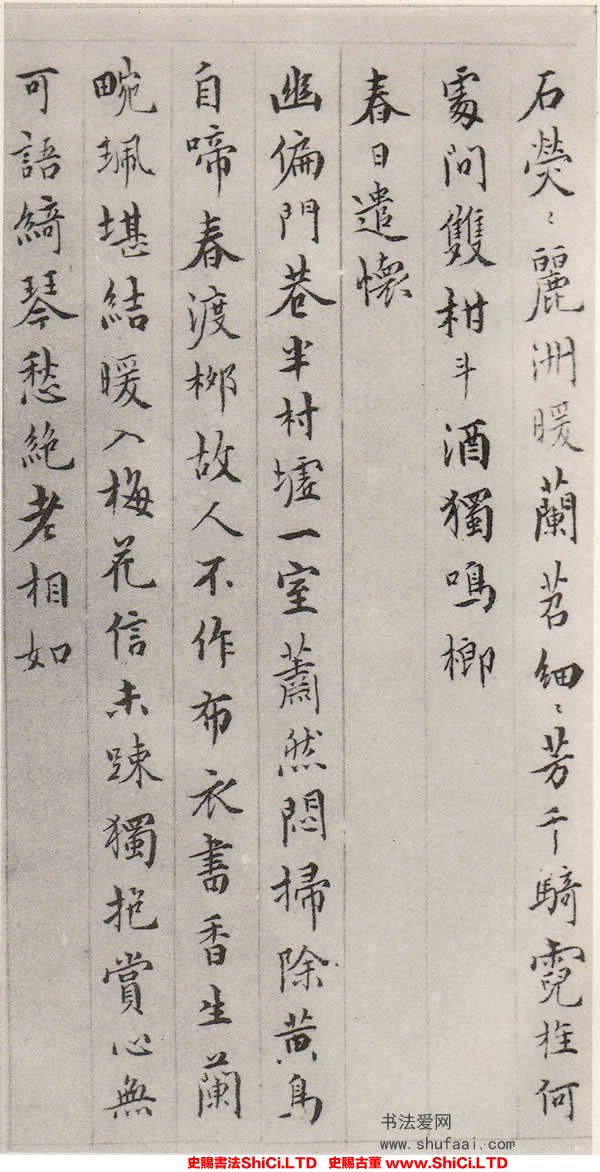 石熒〻麗洲暖蘭苕細〻芳千騎霓旌何
處問雙柑斗酒獨鳴榔
春日遣懷
幽偏門巷半村墟一室蕭然悶掃除黃鳥
自啼春渡柳故人不作布衣書香生蘭
畹珮堪結暖入梅花信未踈獨抱賞心無
可語綺琴愁絕老相如
书法爱网
www.shufaai.com
史賜書法ShiCi.LTD 史賜古董 www.ShiCi.LTD